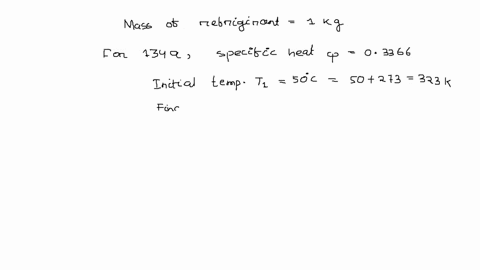 Mass of refrigirant = 1 kg
For 134a, specific heat cp = 0.3366
Initial temp. T1 = 50°c = 50 + 273 = 323 K
Fin